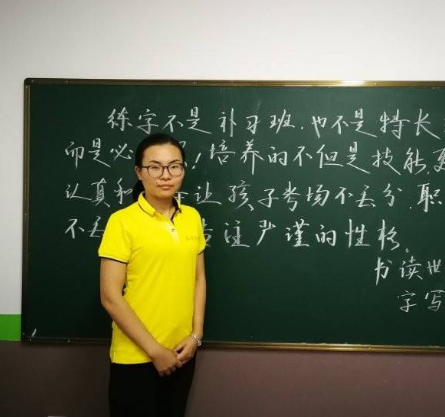 练字不是补习班.也不是特长
而是必 ！培养的不但是技能,更
认真和 让孩子考场不丢分 职
不丢 注严谨的性格。
书读世
字写